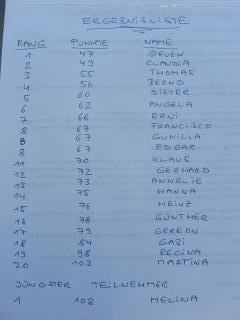 ERGEBNISLISTE
RANG PUNKTE NAME
1 47 STEVEN
2 49 CLAUDIA
3 55 THOMAS
4 56 BERND
5 60 DIETER
6 62 ANGELA
7 66 ERNI
8 67 FRANCISCO
8 67 GUNILLA
8 67 EDGAR
11 70 KLAUS
12 72 GERHARD
13 73 ANNELIE
14 75 HANNA
15 76 HEINZ
16 78 GÜNTHER
17 79 GEREON
18 84 GABI
19 98 REGINA
20 103 MARTINA
JÜNGSTER TEILNEHMER
1 108 MELINA